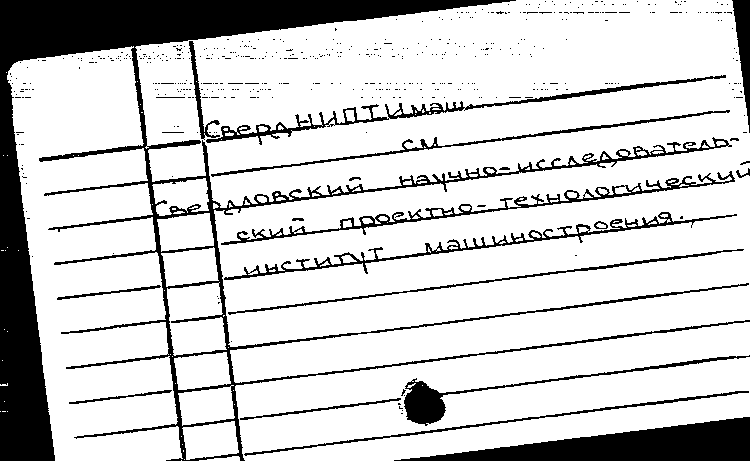 СвердНИПТИмаш.
см
Свердловский научно-исследователь-
ский проектно-технологический
институт машиностроения.